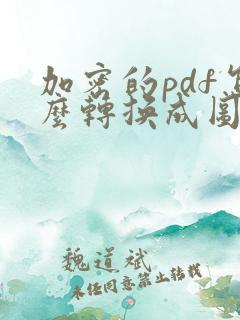 加密的pdf怎
麼轉換成圖
魏道斌
未經同意禁止轉載